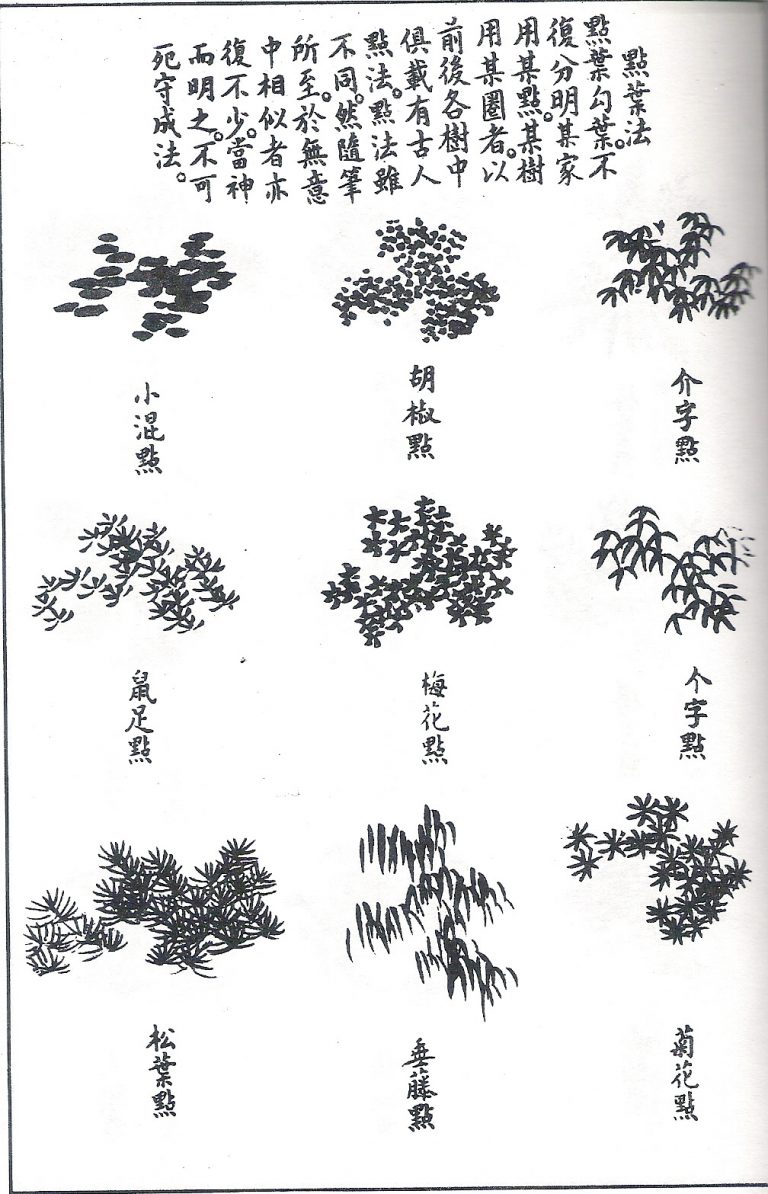 點葉法
點葉勾葉。不
復分明某家
用某點。某樹
用某圈者。以
前後各樹中
俱載有古人
點法。點法雖
不同。然隨筆
所至。於無意
中相似者亦
復不少。當神
而明之。不可
死守成法。
介字點
胡椒點
小混點
个字點
梅花點
鼠足點
菊花點
垂藤點
松葉點